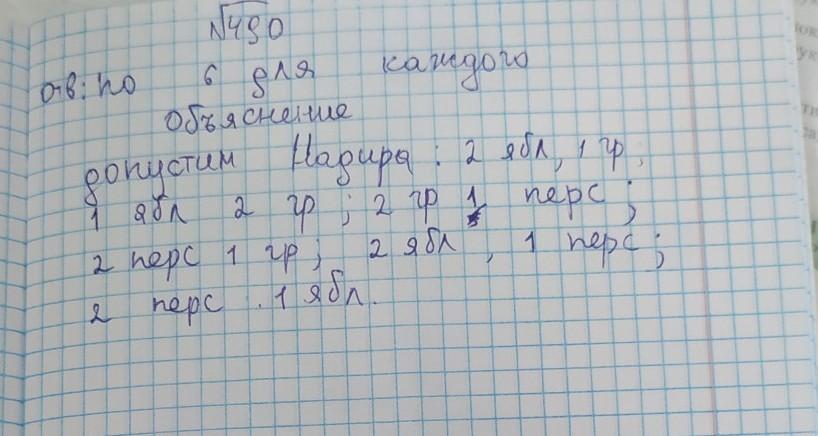 №490
отв: по 6 для каждого
Объяснение
допустим Надира: 2 ябл, 1 гр;
1 ябл 2 гр; 2 гр 1 перс;
2 перс 1 гр; 2 ябл, 1 перс;
2 перс. 1 ябл.